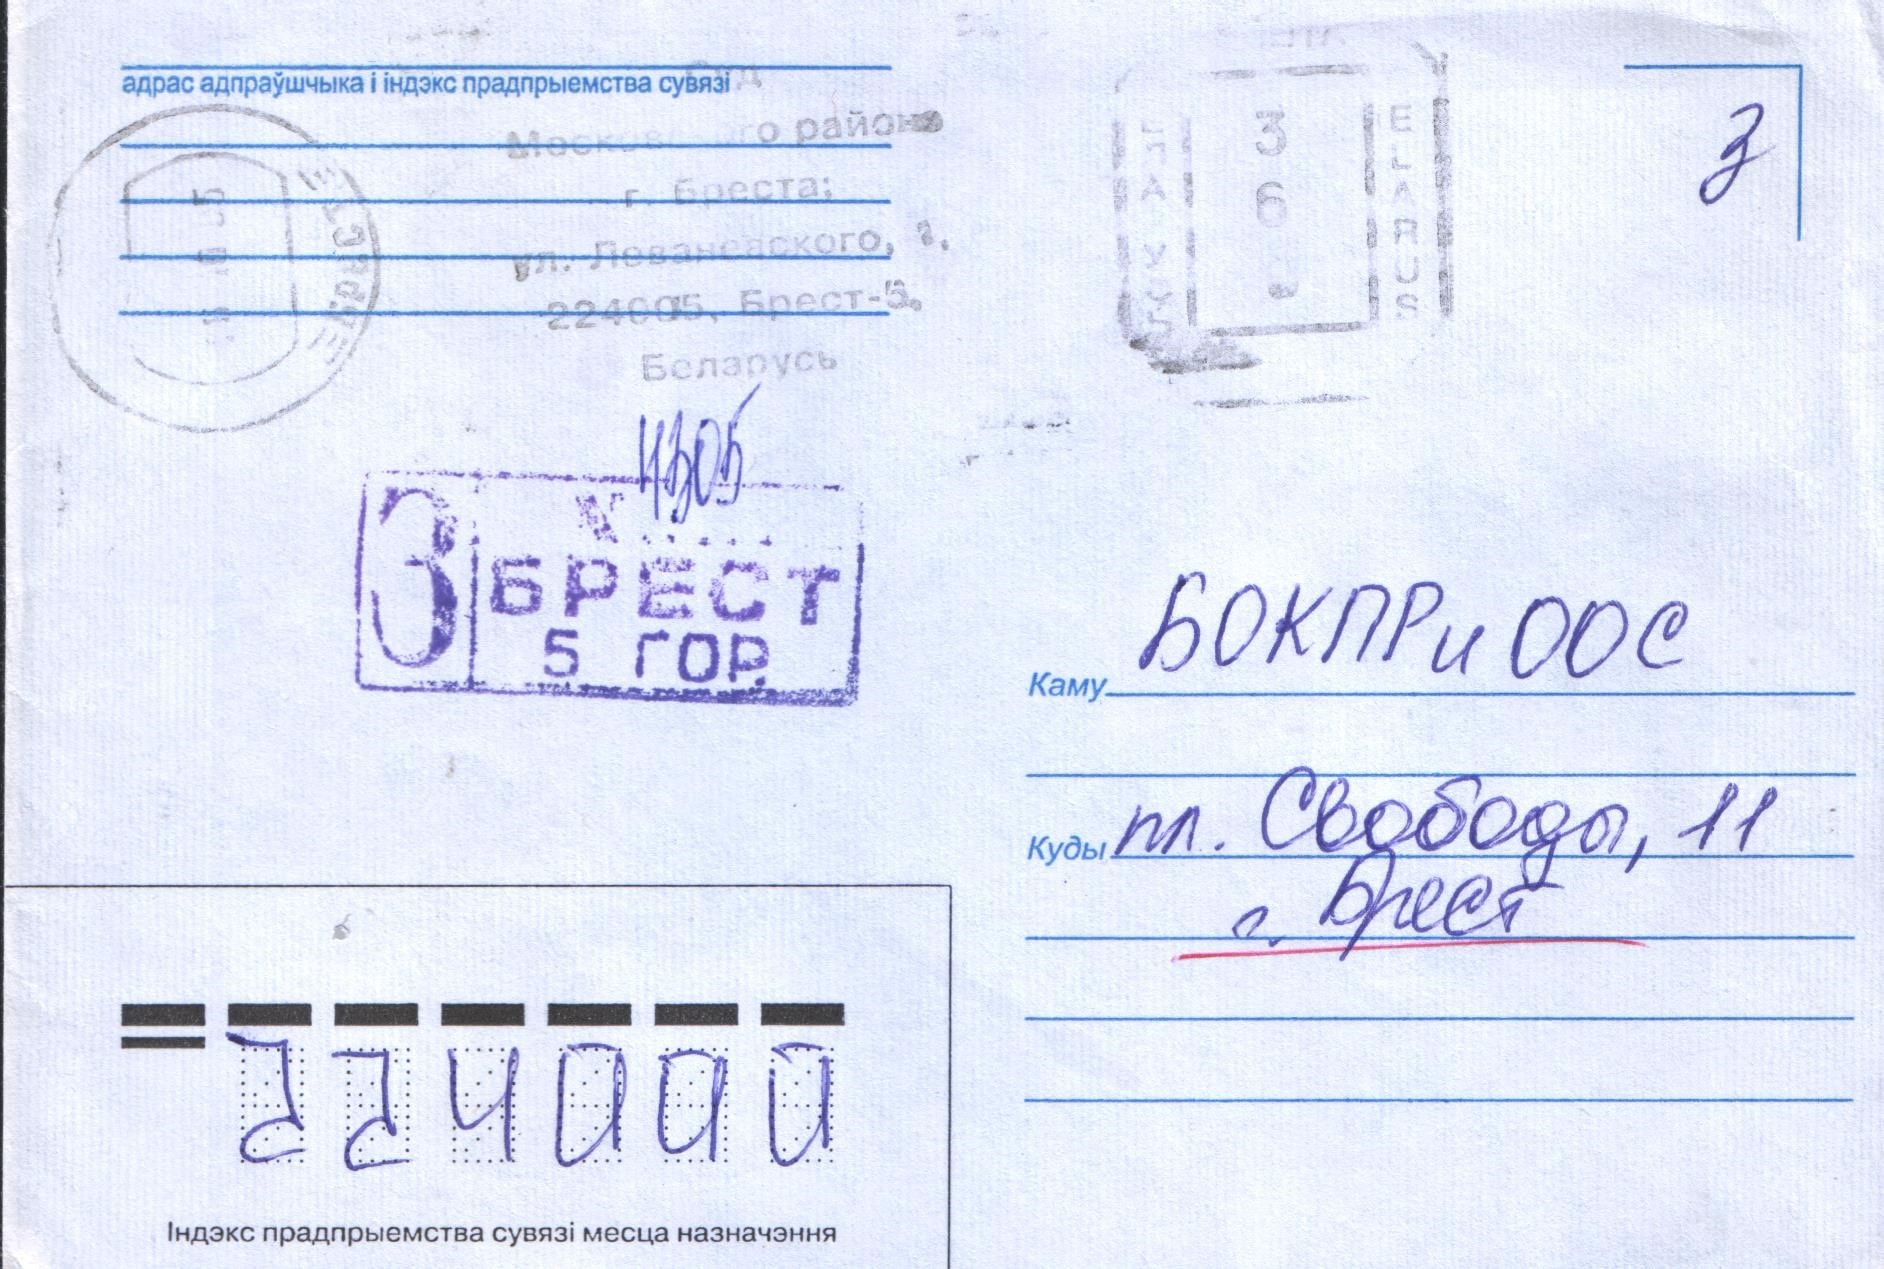 адрас адпраўшчыка і індэкс прадпрыемства сувязі
Суд
Московского района
г. Бреста;
ул. Леваневского,
224005, Брест-5,
Беларусь
3
6
BELARUS
З
З
БРЕСТ
5 ГОР.
Каму БОКПРи ООС
Куды пл. Свободы, 11
г. Брест
224000
Індэкс прадпрыемства сувязі месца назначэння